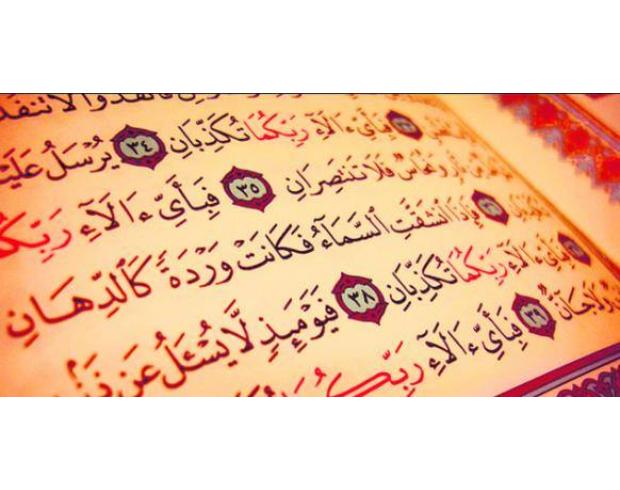 لَا تَنفُذُ
فَبِأَيِّ ءَالَآءِ رَبِّكُمَا تُكَذِّبَانِ ٣٤ يُرْسَلُ عَلَيْ
وَنُحَاسٌ فَلَا تَنتَصِرَانِ ٣٥ فَبِأَيِّ ءَالَآءِ رَبِّكُ
فَإِذَا ٱنشَقَّتِ ٱلسَّمَآءُ فَكَانَتْ وَرْدَةً كَٱلدِّهَانِ
فَبِأَيِّ ءَالَآءِ رَبِّكُمَا تُكَذِّبَانِ ٣٨ فَيَوْمَئِذٍ لَّا يُسْـَٔلُ عَن
وَلَا جَآنٌّ ٣٩ فَبِأَيِّ ءَالَآءِ رَبِّكُمَا